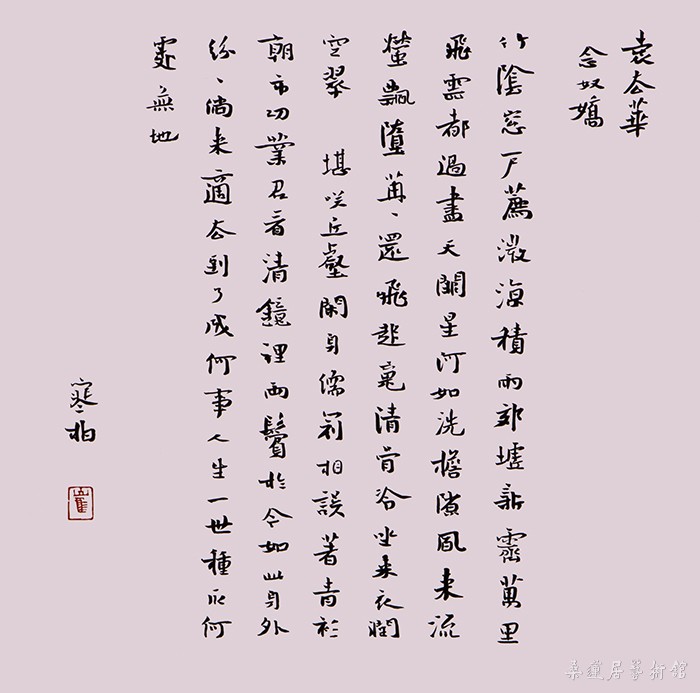 袁去華
念奴嬌
竹陰窓戶薦微涼積雨郊墟新霽萬里
飛雲都過盡天闊星河如洗檐隙風來流
螢飄墮苒、還飛起毫清骨冷坐來衣潤
空翠 堪笑丘壑閑身儒冠相誤著青衫
朝市功業君看清鏡裡兩鬢於今如此身外
紛、倘來適去到了成何事人生一世種瓜何
處無地
寒柏
崔
蓮居藝術館